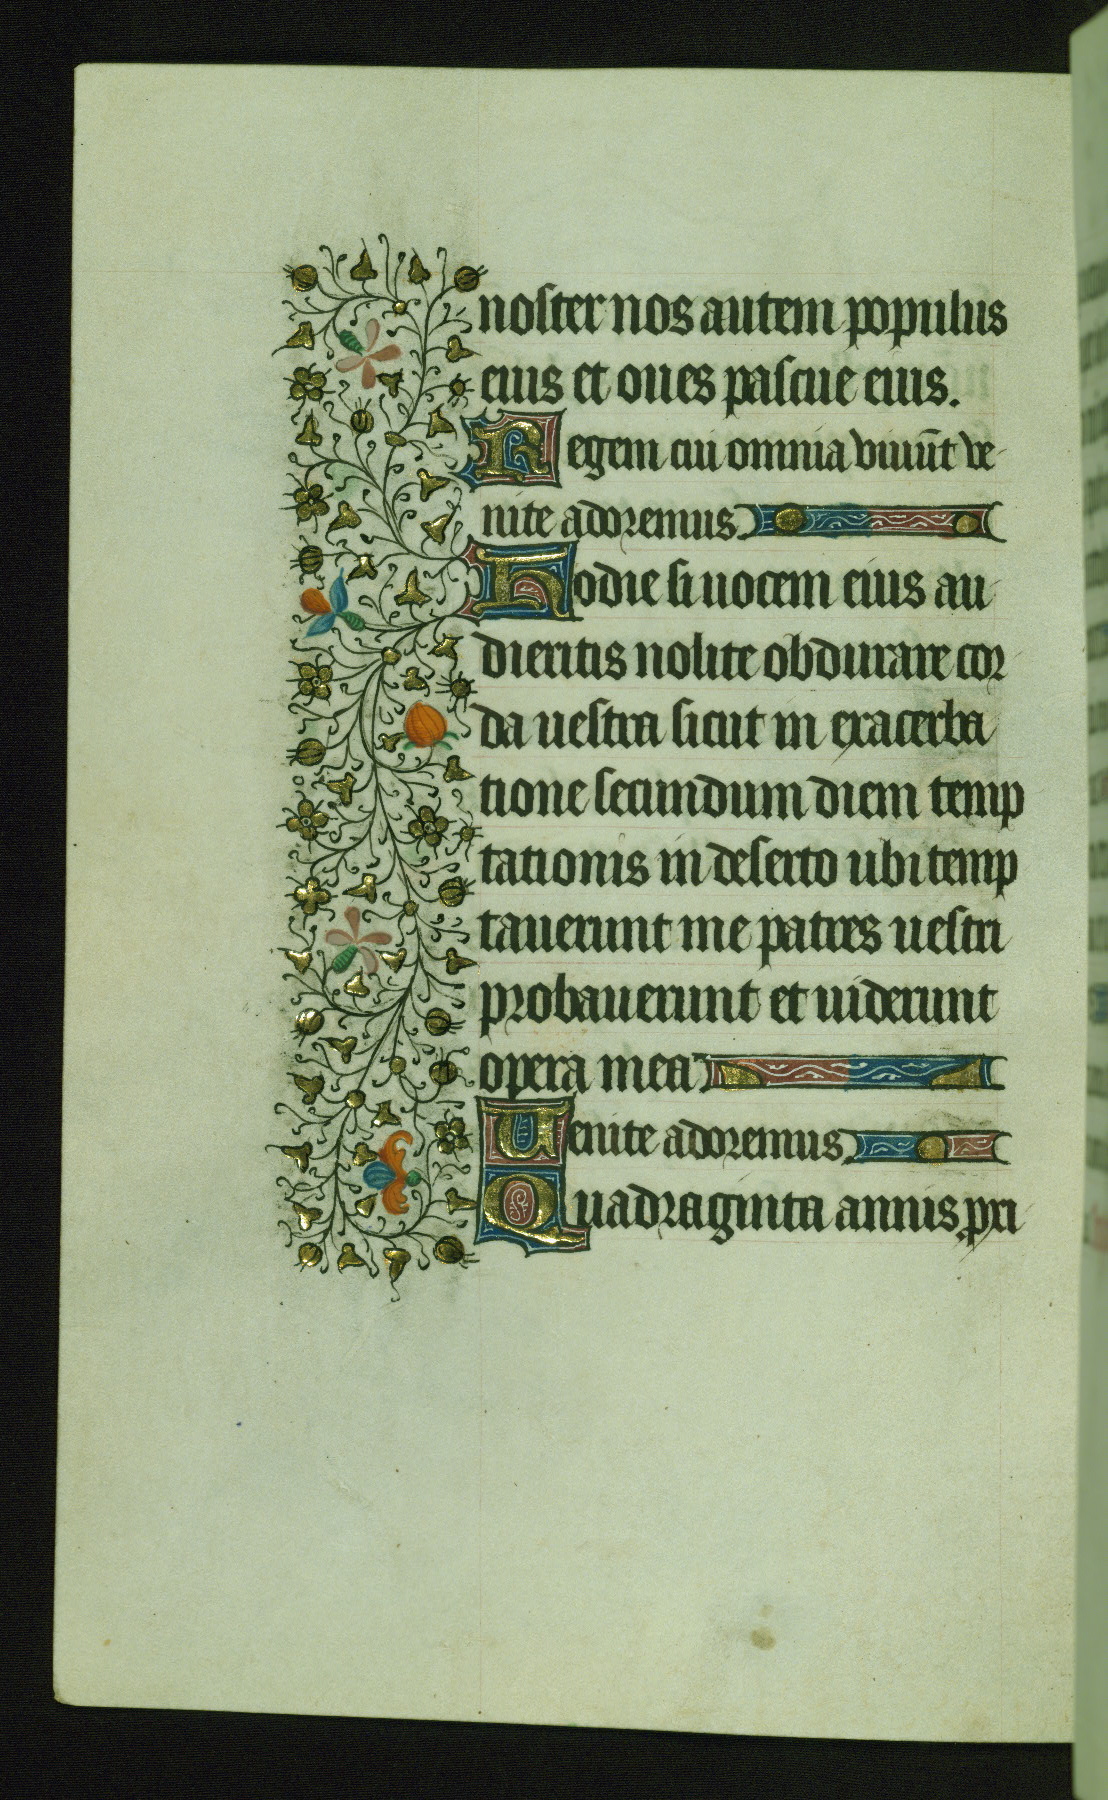 noster nos autem populus
eius et oues pascue eius.
Regem cui omnia viuūt ve
nite adoremus
Hodie si uocem eius au
dieritis nolite obdurare cor
da uestra sicut in exacerba
tione secundum diem temp
tationis in deserto ubi temp
tauerunt me patres uestri
probauerunt et uiderunt
opera mea
Uenite adoremus
Quadraginta annis pxi